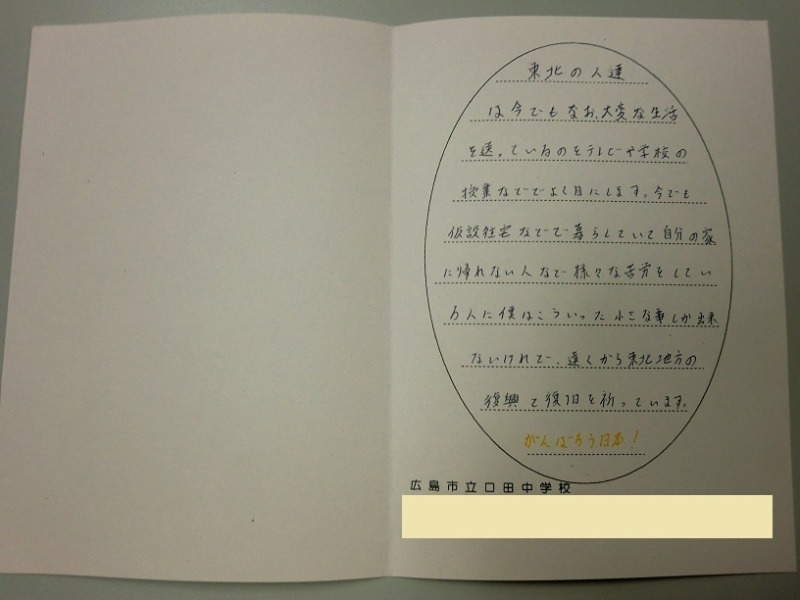 東北の人達
は今でもなお、大変な生活
を送っているのをテレビや学校の
授業などでよく目にします。今でも
仮設住宅などで暮らしていて自分の家
に帰れない人など様々な苦労をしてい
る人に僕はこういった小さな事しか出来
ないけれど、遠くから東北地方の
復興と復旧を祈っています。
がんばろう日本!
広島市立口田中学校